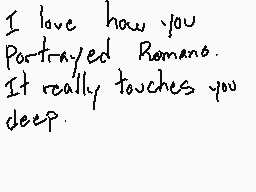 I love how you
Portrayed Romano.
It really touches you
deep.